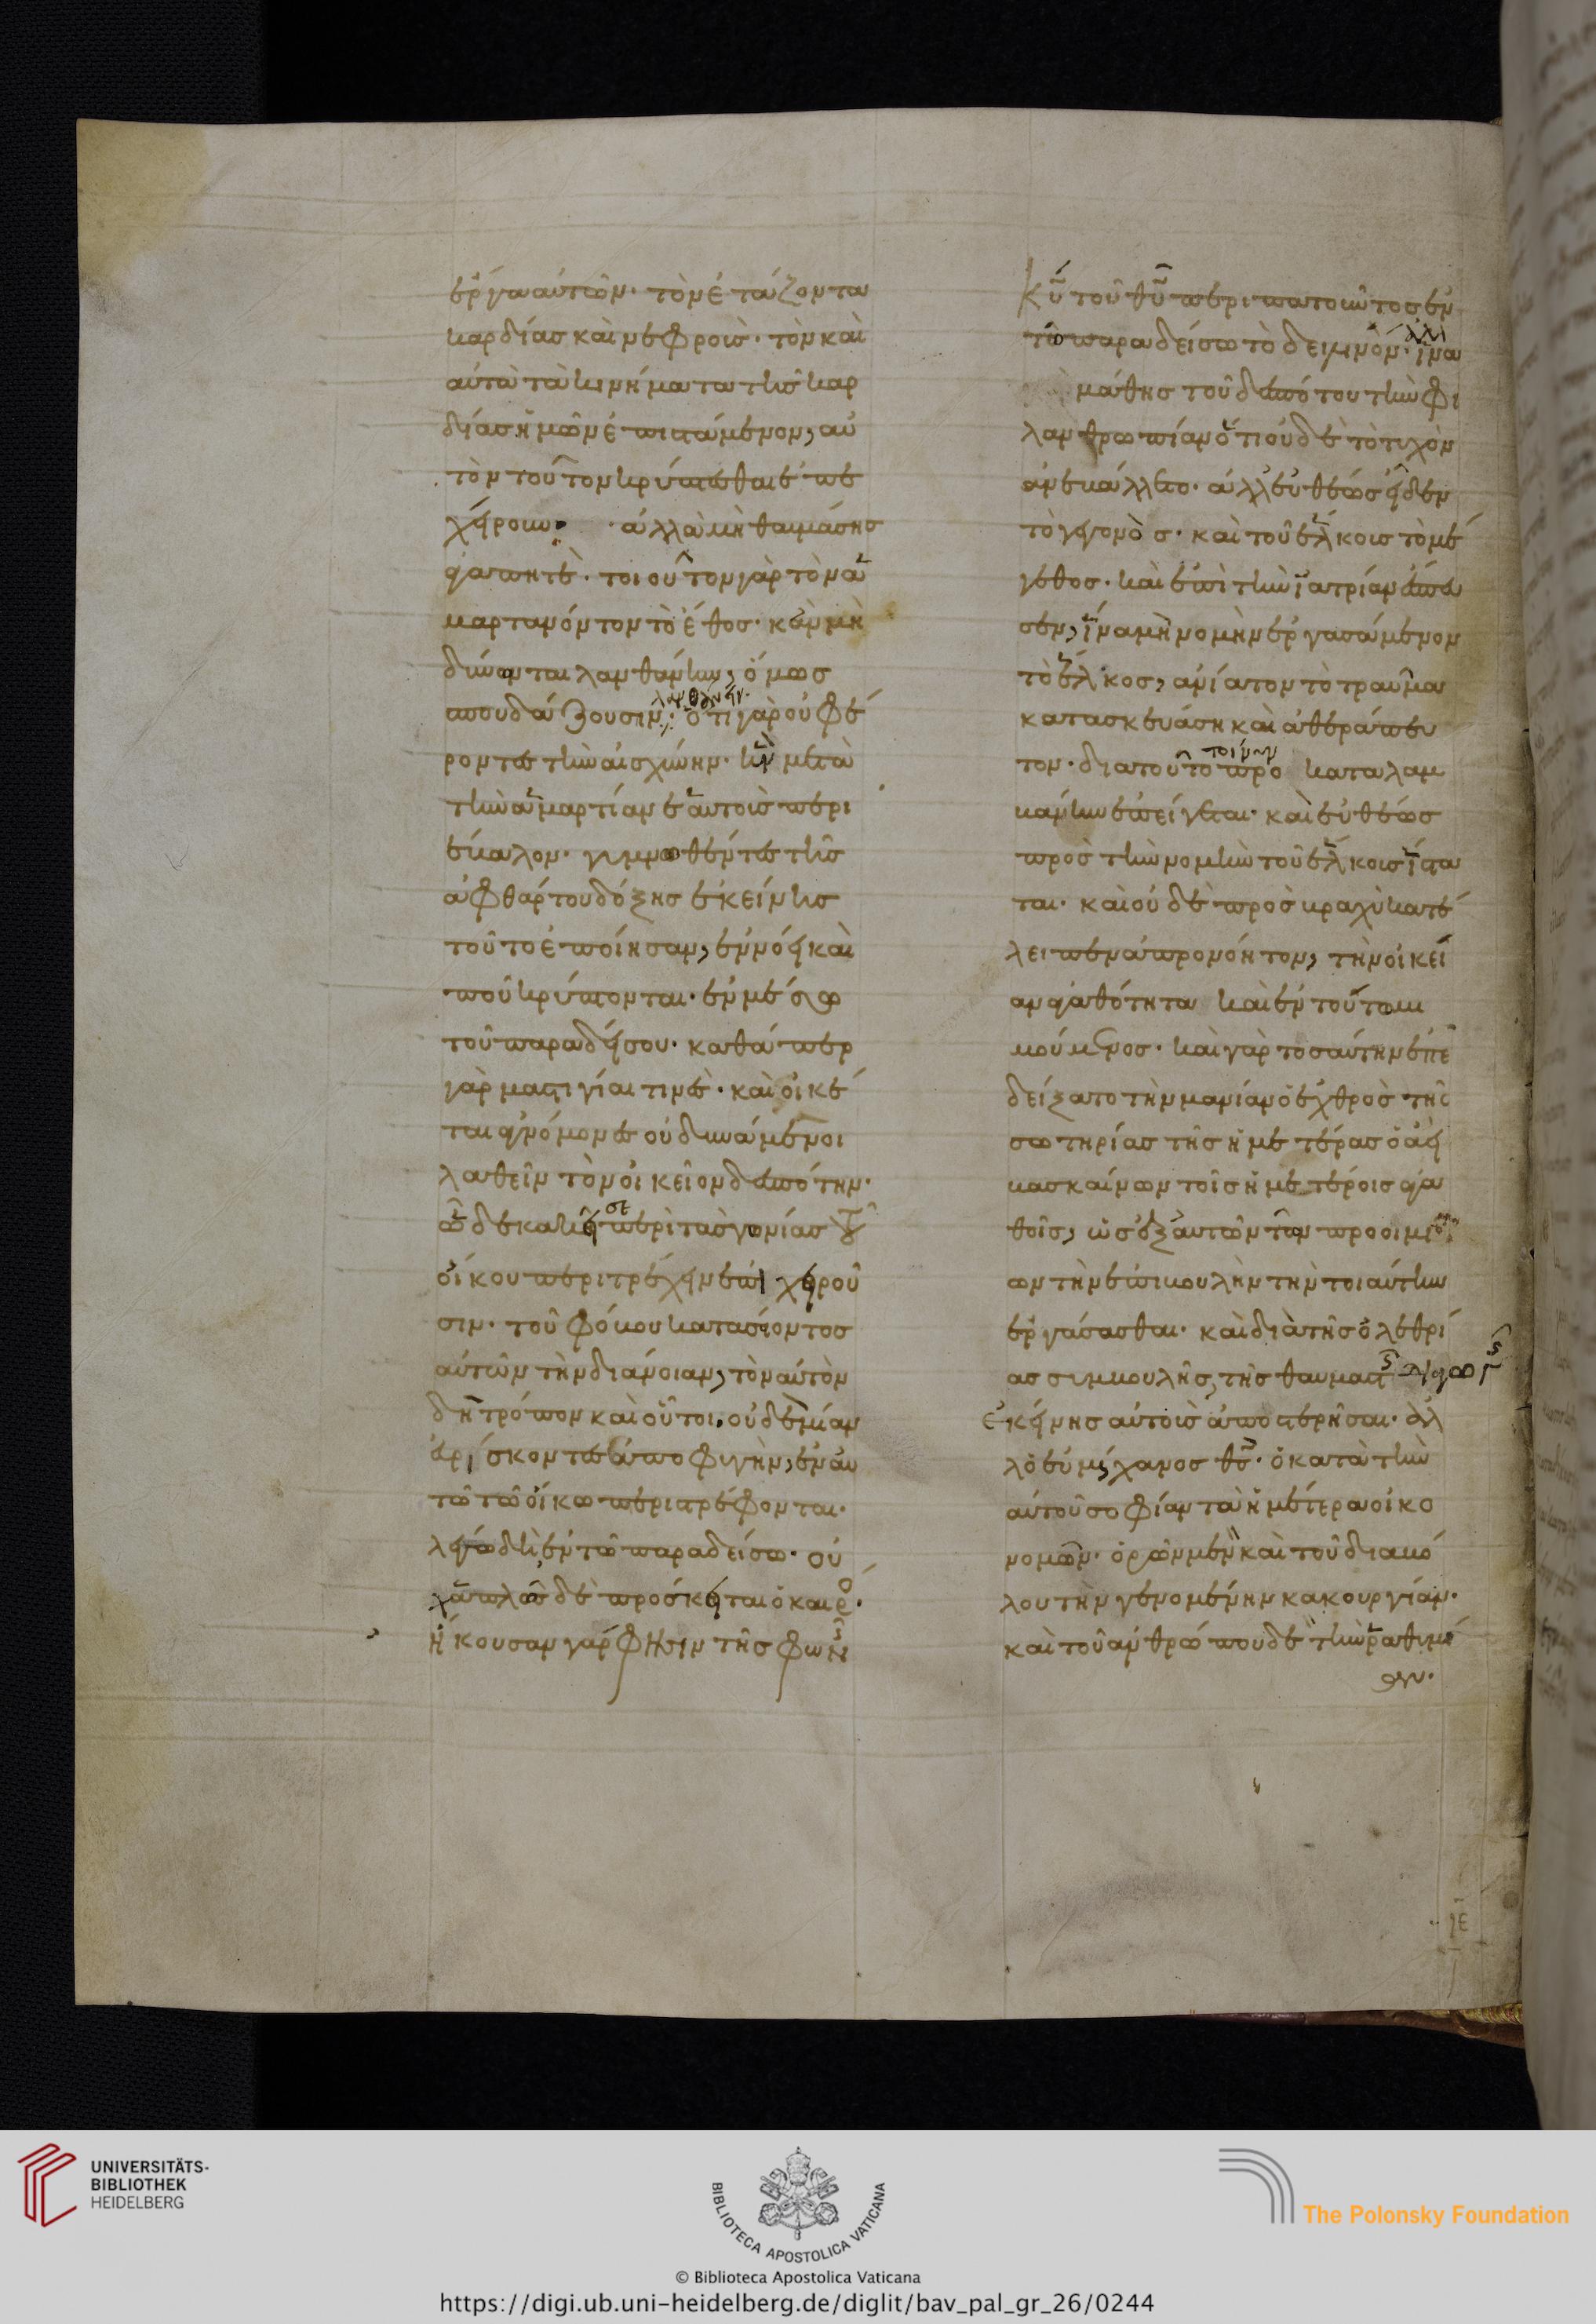 ἔργα αὐτῶν· τὸν ἐτάζοντα
καρδίας καὶ νεφρούς· τὸν καὶ
αὐτὰ τὰ κινήματα τῆς καρ
δίας ἡμῶν ἐπιστάμενον, αὐ
τὸν τοῦτον κρύπτεσθαι ἐπε
χείρουν· ἀλλὰ μὴ θαυμάσῃς
ἀγαπητὲ· τοιοῦτον γὰρ τῶν ἁ
μαρτανόντων τὸ ἔθος· κἂν μὴ
δύνωνται λανθάνειν, ὅμως
σπουδάζουσιν· ὅτι γὰρ οὐ φέ
ροντες τὴν αἰσχύνην· ἣν μετὰ
τὴν ἁμαρτίαν ἑαυτοῖς περι
έβαλον· γυμνωθέντες τῆς
ἀφθάρτου δόξης ἐκείνης
τοῦτο ἐποίησαν, ἐννόει καὶ
ποῦ κρύπτονται· ἐν μέσῳ
τοῦ παραδείσου· καθάπερ
γὰρ μαστιγίαι τινὲς· καὶ οἰκέ
ται ἀγνώμονες οὐ δυνάμενοι
λαθεῖν τὸν οἰκεῖον δεσπότην·
ὧδε κακεῖσε περὶ τὰς γωνίας τοῦ
οἴκου περιτρέχειν ἐπιχειροῦ
σιν· τοῦ φόβου κατασείοντος
αὐτῶν τὴν διάνοιαν, τὸν αὐτὸν
δὴ τρόπον καὶ οὗτοι, οὐδεμίαν
εὑρίσκοντες ἀποφυγὴν, ἐν αὐ
τῷ τῷ οἴκῳ περιστρέφονται·
λέγω δὴ ἐν τῷ παραδείσῳ· οὐ
χ ἁπλῶς δὲ πρόσκειται ὁ καιρός·
ἤκουσαν γάρ φησιν τῆς φωνῆς
κυ τοῦ θυ περιπατοῦντος ἐν
τῷ παραδείσῳ τὸ δειλινόν· ἀλλ ἵνα
μάθῃς τοῦ δεσπότου τὴν φι
λανθρωπίαν ὅτι οὐδὲ τὸ τυχὸν
ἀνεβάλλετο· ἀλλ εὐθέως εἶδεν
τὸ γεγονὸς· καὶ τοῦ ἕλκους τὸ μέ
γεθος· καὶ ἐπὶ τὴν ἰατρίαν ἔσπευ
σεν, ἵνα μὴ νομὴν ἐργασάμενον
τὸ ἕλκος, ἀνίατον τὸ τραῦμα
κατασκευάσῃ καὶ ἀθεράπευ
τον· διατοῦτο τοίνυν προκαταλαμ
βάνειν ἐπείγεται· καὶ εὐθέως
πρὸς τὴν νομὴν τοῦ ἕλκους ἵστα
ται· καὶ οὐδὲ πρὸς βραχὺ κατέ
λειπεν ἀπρονόητον, τὴν οἰκεί
αν ἀγαθότητα καὶ ἐν τούτῳ μι
μούμενος· καὶ γὰρ τοσαύτην ἐπε
δείξατο τὴν μανίαν ὁ ἐχθρὸς τῆς
σωτηρίας τῆς ἡμετέρας ὁ ἀεὶ
βασκαίνων τοῖς ἡμετέροις ἀγα
θοῖς, ὡς ἐξ αὐτῶν τῶν προοιμί
ων τὴν ἐπιβουλὴν τὴν τοιαύτην
ἐργάσασθαι· καὶ διὰ τῆς ὀλεθρί
ας συμβουλῆς, τῆς θαυμαστῆς διαγωγῆς
ἐκείνης αὐτοὺς ἀποστερῆσαι· ἀλ
λ ὁ εὐμήχανος θς· ὁ κατὰ τὴν
αὐτοῦ σοφίαν τὰ ἡμέτερα οἰκο
νομῶν· ὁρῶν μὲν καὶ τοῦ διαβό
λου τὴν γενομένην κακουργίαν·
καὶ τοῦ ἀνθρώπου δὲ τὴν ῥαθυμί
αν·
ιε
UNIVERSITÄTS-
BIBLIOTHEK
HEIDELBERG
BIBLIOTECA APOSTOLICA VATICANA
The Polonsky Foundation
© Biblioteca Apostolica Vaticana
https://digi.ub.uni-heidelberg.de/diglit/bav_pal_gr_26/0244